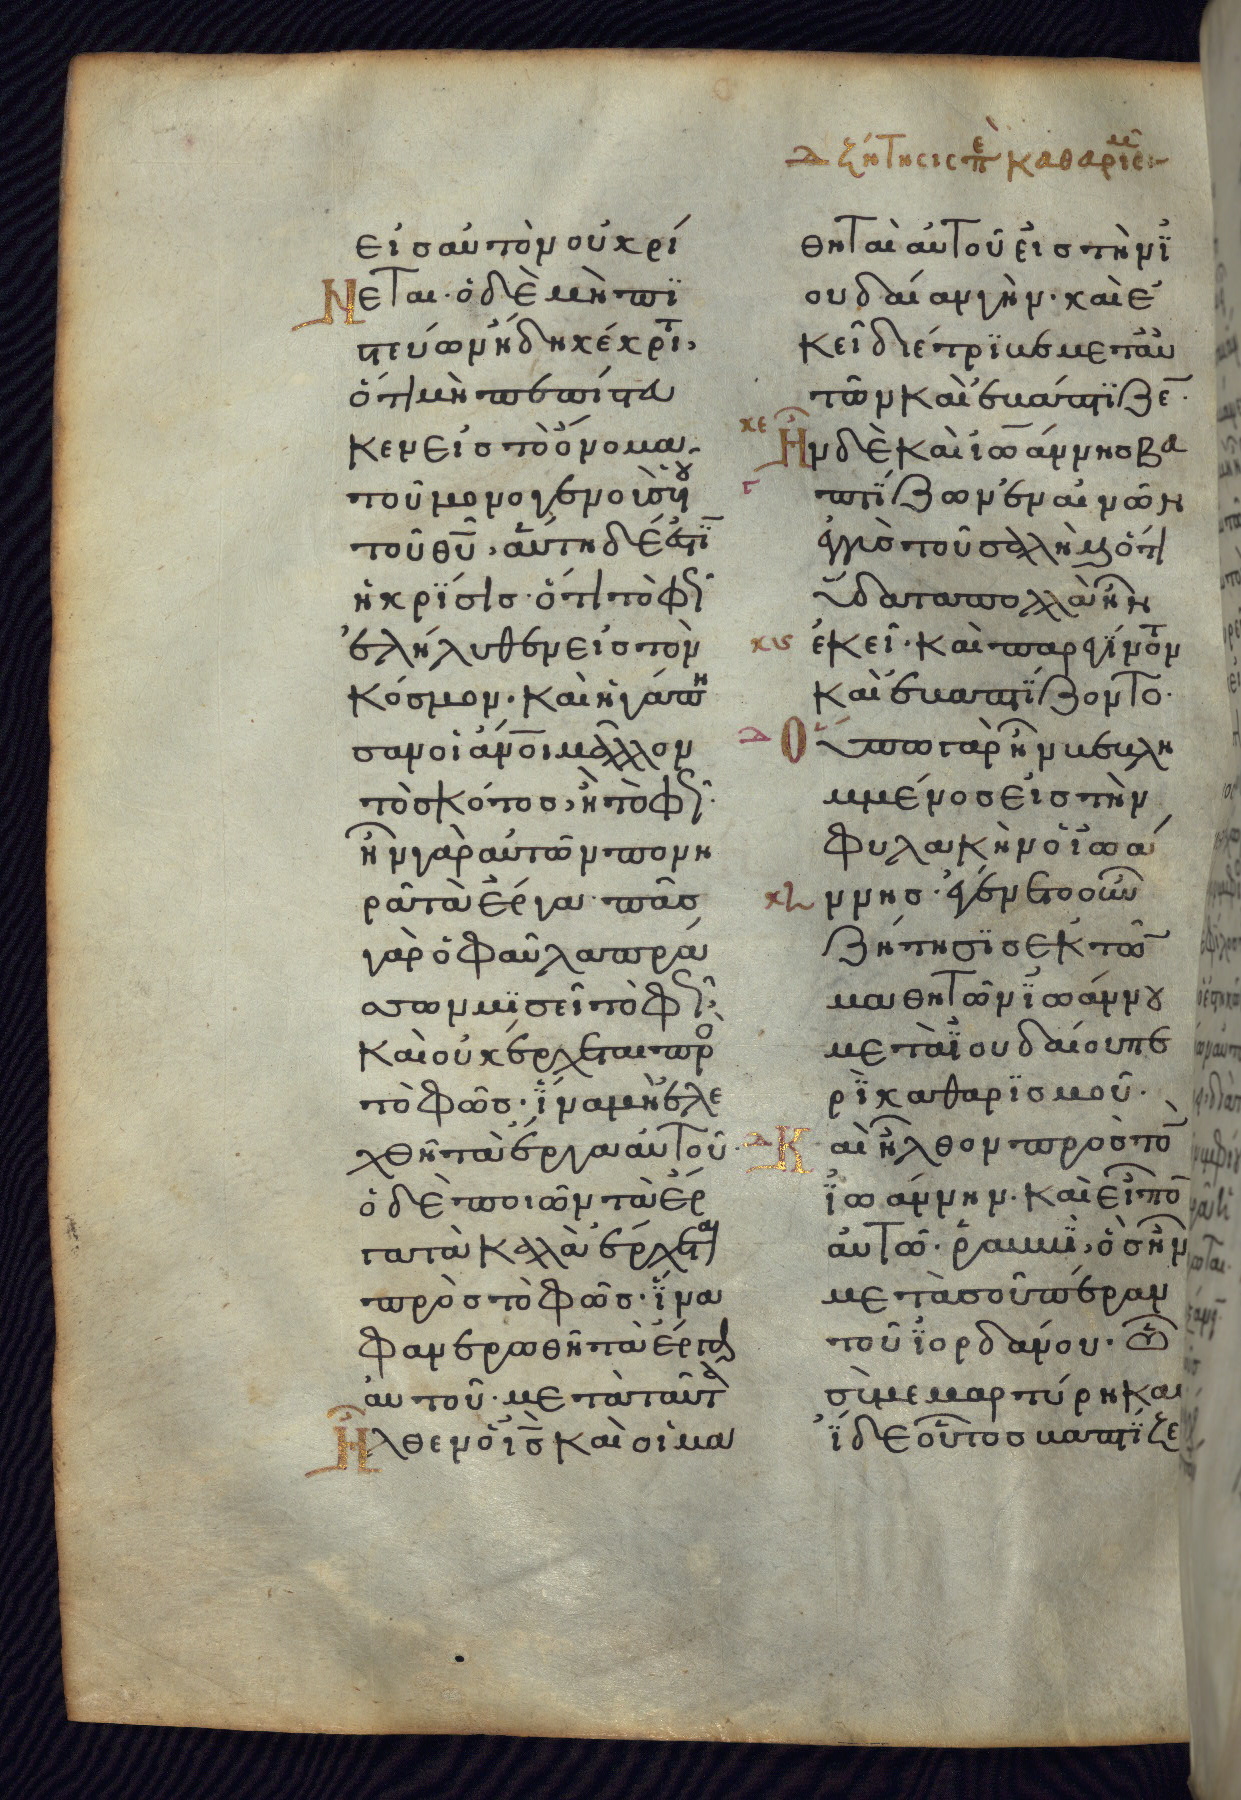 ζήτησις πε καθαρισμ
εἰσαυτὸν οὐ κρί
Νεται· ὁ δὲ μὴ πϊ
στεύων ἤδη κέκριτ,
ὅτι μὴ πεπίστευ
κεν εἰς τὸ ὄνομα
τοῦ μονογενοῦς ϋυ
τοῦ θυ, αὕτη δέ ἐστϊ
ἡ κρϊσις· ὅτι τὸ φῶς
ἐλήλυθεν εἰς τὸν
κόσμον· καὶ ἠγάπη
σαν οἱ ἄνοι μᾶλλον
τὸ σκότος, ἢ τὸ φῶς·
ἦν γὰρ αὐτῶν πονη
ρὰ τὰ ἔργα· πᾶς
γὰρ ὁ φαῦλα πρά
σσων μϊσεῖ τὸ φῶς·
καὶ οὐκ ἔρχεται πρὸ
τὸ φῶς· ἵνα μὴ ἐλε
χθῆ τὰ ἔργα αὐτοῦ·
ὁ δὲ ποιῶν τὰ ἔρ
γα τὰ καλὰ ἔρχεται
πρὸς τὸ φῶς· ἵνα
φανερωθῆ τὰ ἔργα
αὐτοῦ· μετὰ ταῦτα
Ἦλθεν ὁ ις καὶ οἱ μα
θηταὶ αὐτοῦ εἰς τὴν ϊ
ουδαίαν γῆν· καὶ ἐ
κεῖ διέτρϊβε μετ αὐ
τῶν καὶ ἐβάπτϊζε·
κε Ἦν δὲ καὶ ἰωάννης βα
γ πτϊζων ἐν αἰνὼν
ἐγγὺς τοῦ σαλὴμ ὅτι
ὕδατα πολλὰ ἦν
κϛ ἐκεῖ· καὶ παρεγίνοντ
καὶ ἐβαπτϊζοντο·
Ο ὔπω γὰρ ἦν βεβλη
μμένος εἰς τὴν
φυλακὴν ὁ ἰωά
κζ ννης· ἐγένετο οὖν
ζήτησϊς ἐκ τῶν
μαθητῶν ϊωάννου
μετὰ ϊουδαίου πε
ρὶ καθαρϊσμοῦ·
Κ αὶ ἦλθον πρὸς τὸ
ϊωάννην· καὶ εἶπὸ
αὐτῶ· ῥαββϊ, ὃς ἦν
μετὰ σοῦ πέραν
τοῦ ϊορδάνου· ὧ
σὺ μεμαρτύρηκα
ἴδε οὗτος βαπτϊζε